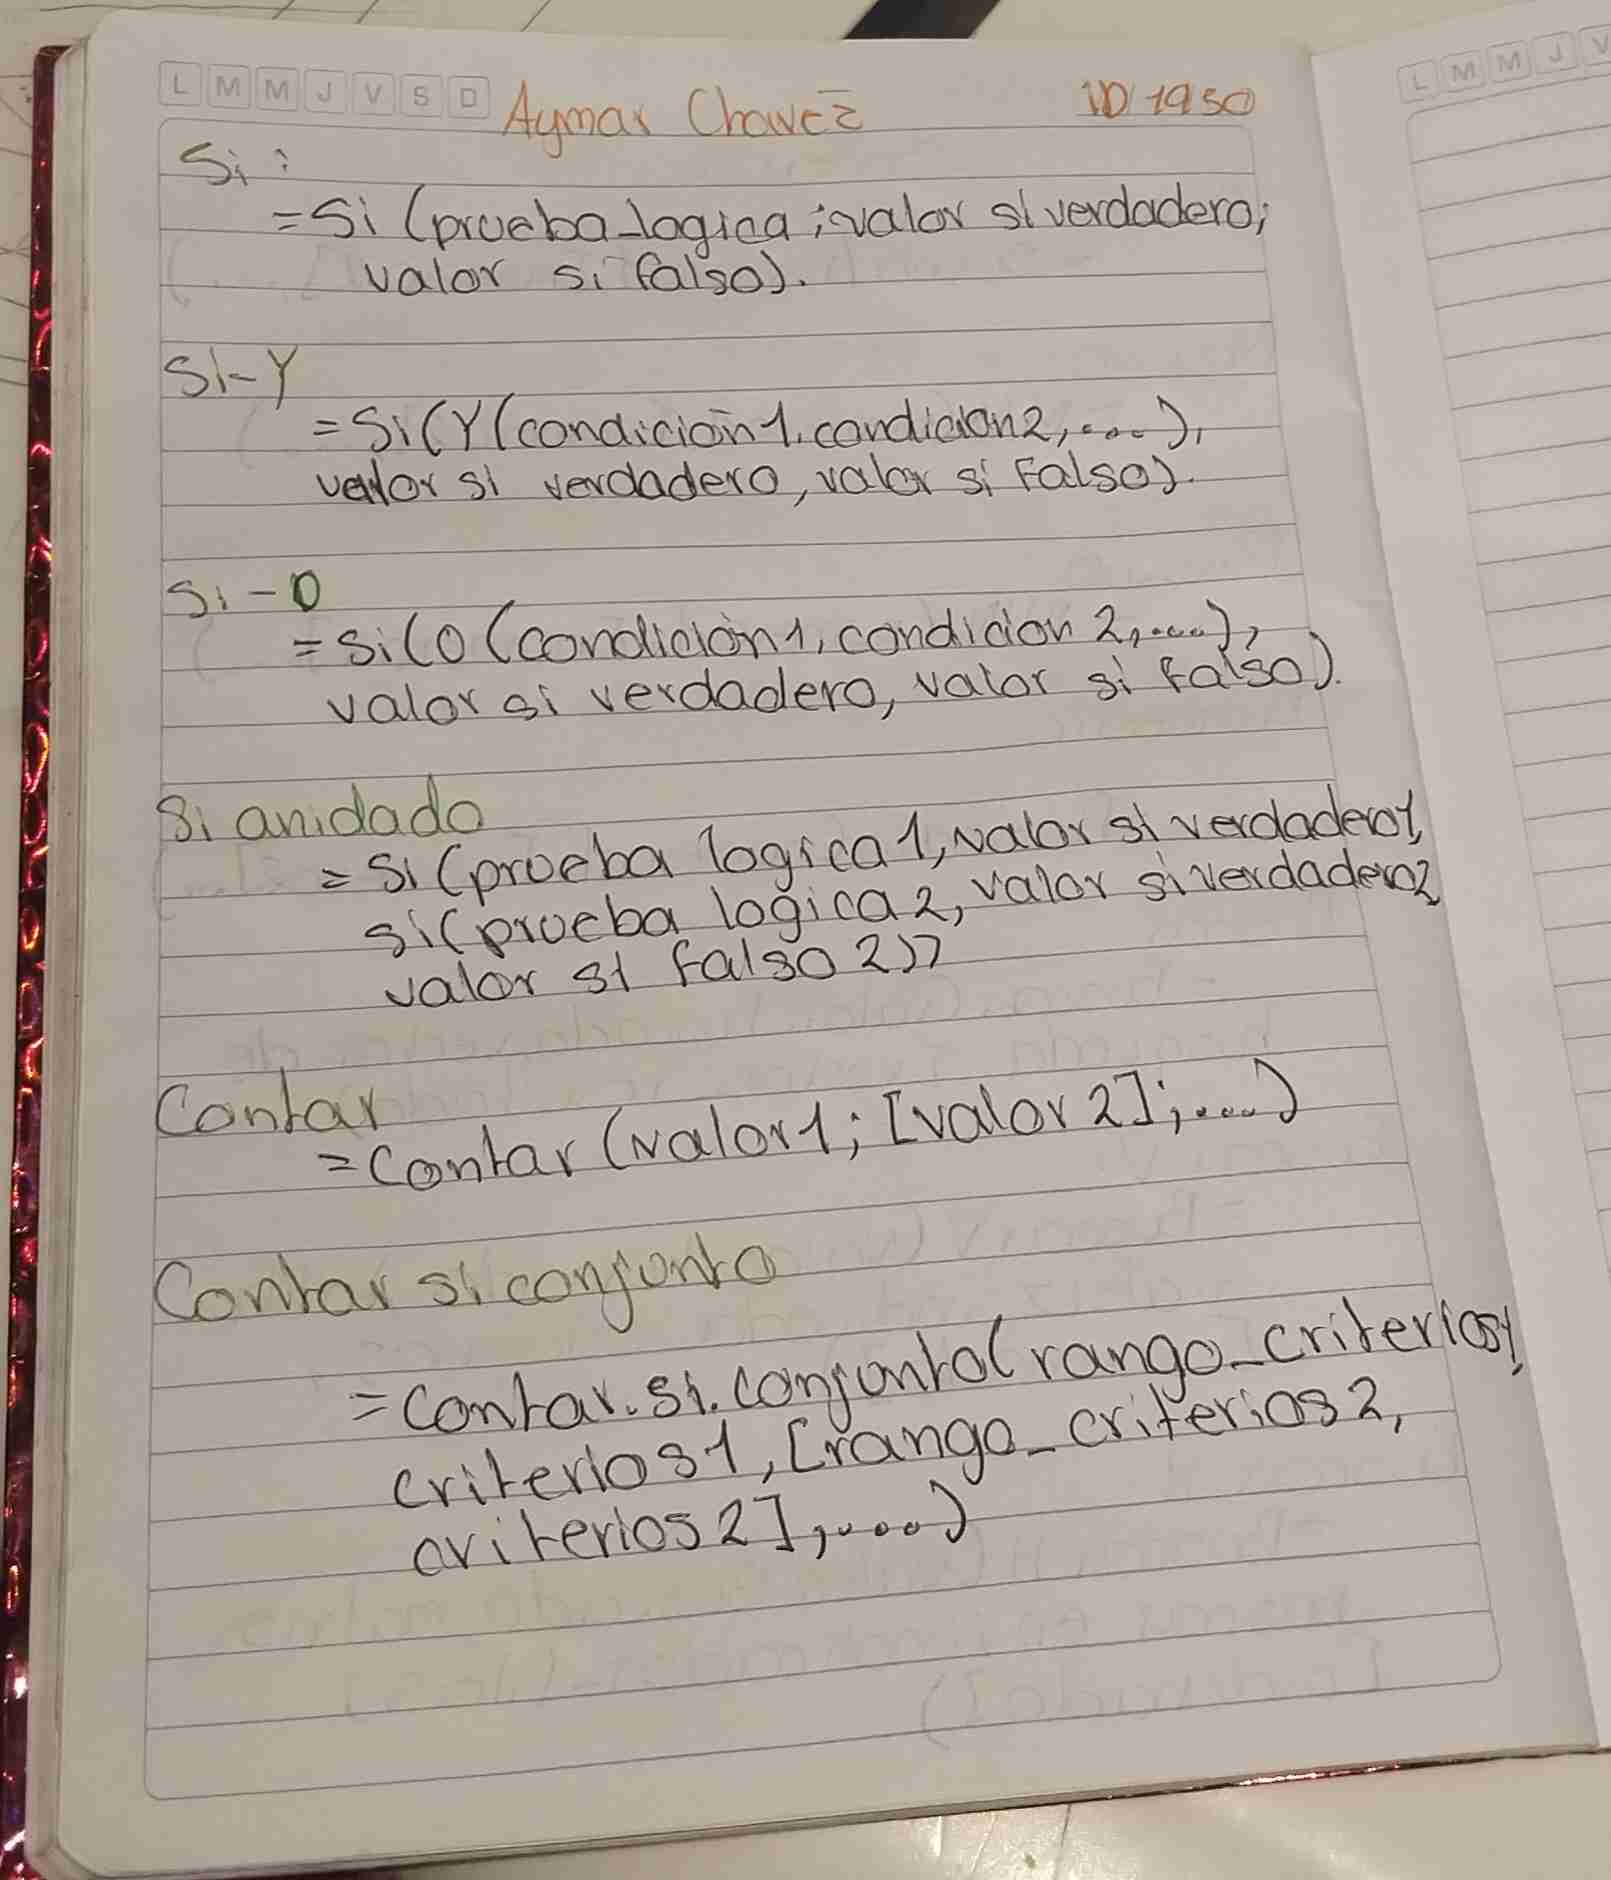 L M M J V S D
Aymar Chavez ID 1950
Si:
=Si (prueba_logica; valor si verdadero;
valor si falso).
Si-Y
=Si(Y(condición1, condicion2,....),
valor si verdadero, valor si Falso).
Si-O
=Si(O(condición1, condicion 2,....),
valor si verdadero, valor si falso).
Si anidado
=Si(prueba logica1, valor si verdadero1,
si(prueba logica2, valor si verdadero2
valor si falso2))
Contar
=Contar(valor1; [valor2];....)
Contar si conjunto
=Contar.si.conjunto(rango_criterios1,
criterios1, [rango_criterios2,
criterios2],....)
L M M J V